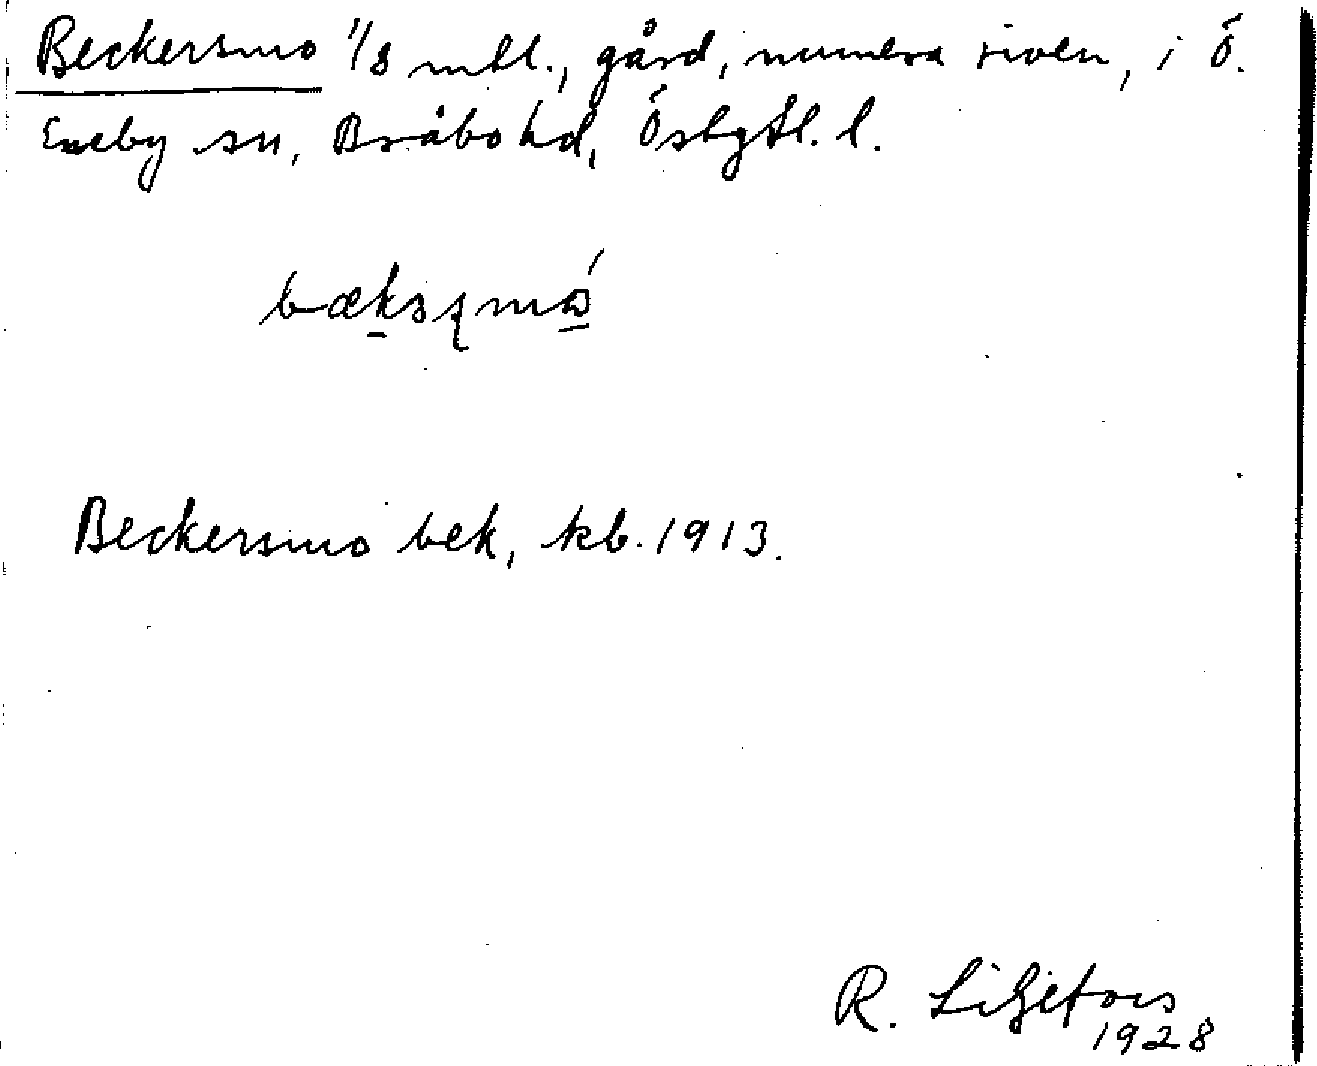 Beckersmo 1/8 mtl., gård, numera riven, i Ö.
Eneby sn, Bråbo hd, Östgtl. l.
Beckersmo bek, kb. 1913.
R. Liljefors
1928